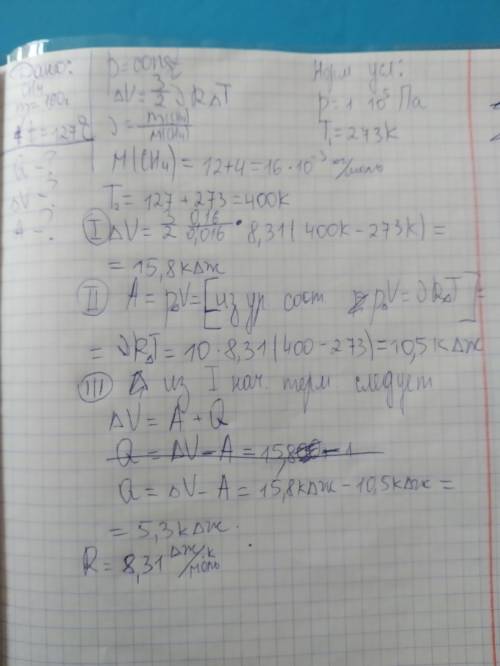 Дано:
CH₄
m = 160г
t = 127°C
Q - ?
ΔV - ?
A - ?
p = const
ΔV = 3/2 νRΔT
ν = m(CH₄)/M(CH₄)
Норм усл:
p = 1 · 10⁵ Па
T₁ = 273K
M(CH₄) = 12+4 = 16 · 10⁻³ кг/моль
T₂ = 127 + 273 = 400K
I ΔV = 3/2 0,16/0,016 · 8,31(400K - 273K) =
= 15,8кДж
II A = pV = [из ур сост pV = νRΔT] =
= νRΔT = 10 · 8,31(400 - 273) = 10,5 кДж
III из I нач. терм следует
ΔV = A + Q
Q = ΔV - A = 15,8
Q = ΔV - A = 15,8кДж - 10,5кДж =
= 5,3кДж.
R = 8,31 Дж·к/моль